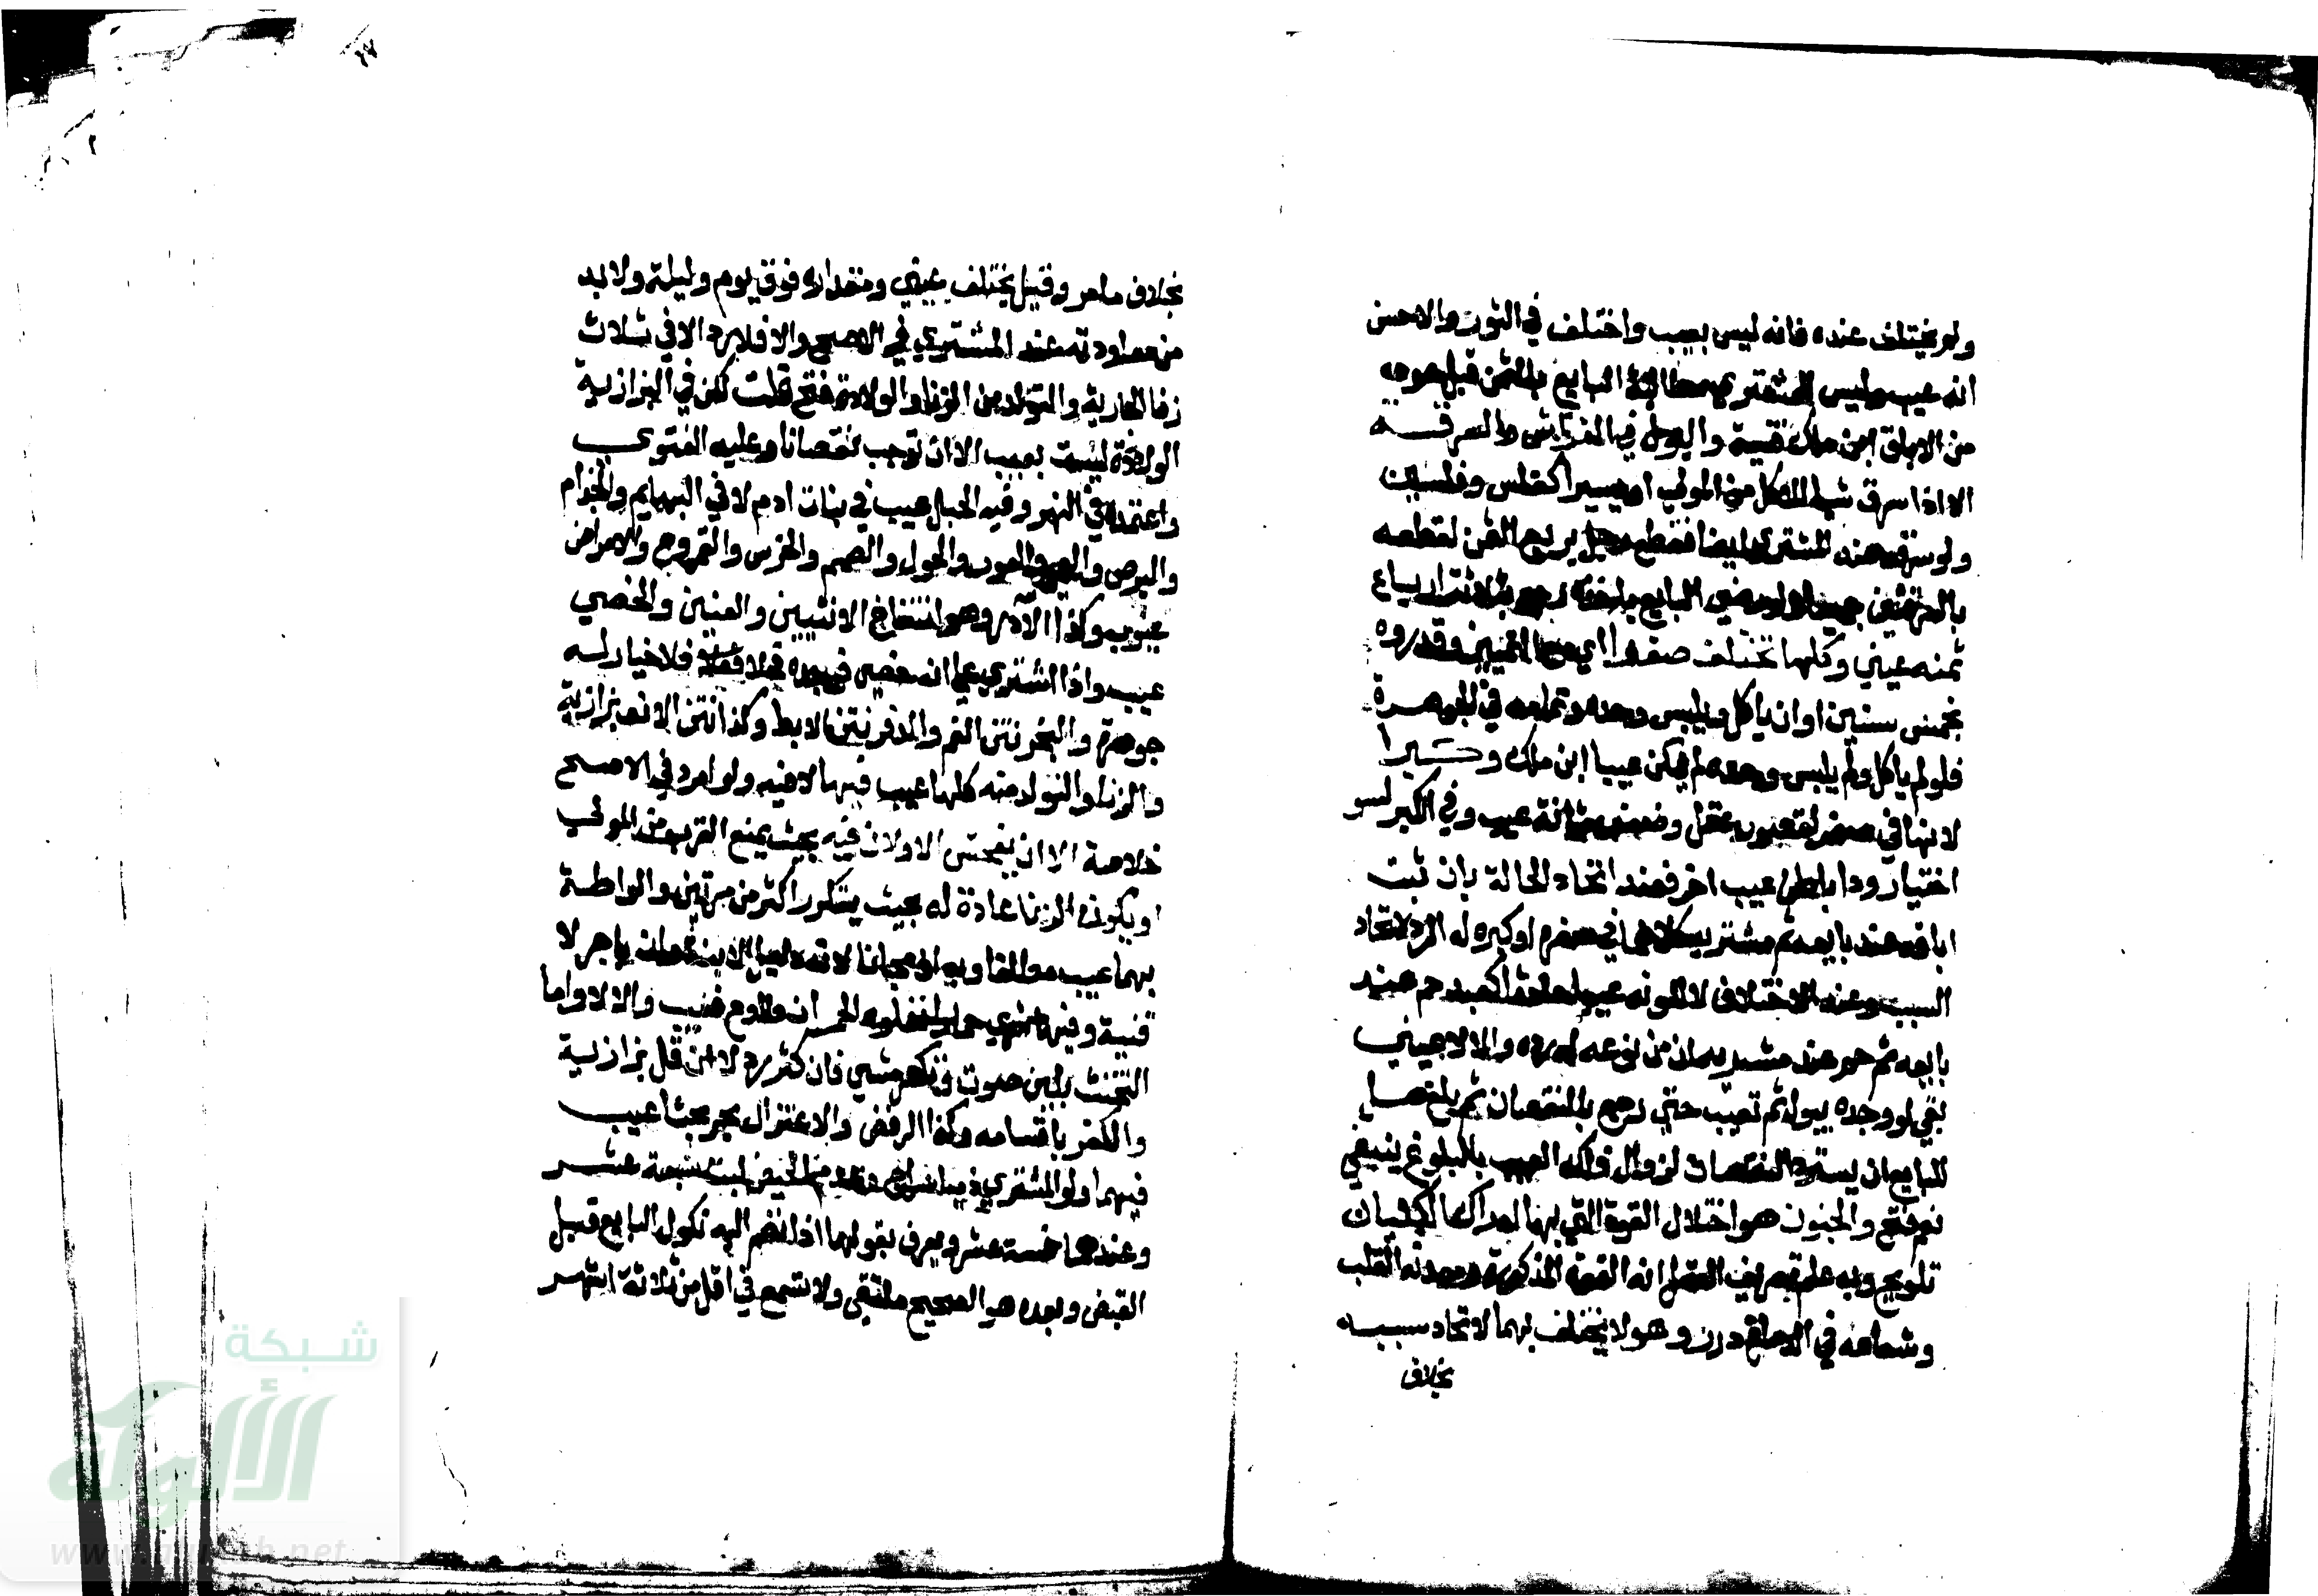 ولم يختلف عنده فانه ليس بعيب واختلف في الثور والاحسن
انه عيب وليس للمشتري مطالبة البايع بالثمن قبل عوده
من الاباق ابن ملك قنية والبول في الفراش والسرقة
الا اذا سرق شيا للاكل من المولى او يسيرا كفلس وفلسين
ولو سرق عند المشتري ايضا فقطع رجع بربع الثمن لقطعه
بالسرقتين جميعا ولو رضي البايع باخذه رجع بثلاثة ارباع
ثمنه عيني وكلها تختلف صغرا اي مع التمييز وقدروه
بخمس سنين او ان ياكل ويلبس وحده وتمامه في الجوهرة
فلو لم ياكل ولم يلبس وحده لم يكن عيبا ابن ملك وكبرا
لانها في الصغر لقصور عقل وضعف مثانة عيب وفي الكبر لسو
اختيار ودا باطن عيب اخر فعند اتحاد الحالة بان ثبت
اباقه عند بايعه ثم مشتريه كلاهما في صغره او كبره له الرد لاتحاد
السبب وعند الاختلاف لا لكونه عيبا حادثا كعبد حم عند
بايعه ثم حم عند مشتريه ان من نوعه له رده والا لا عيني
بقي لو وجده يبول ثم تعيب حتى رجع بالنقصان ثم بلغ هل
للبايع ان يسترد النقصان لزوال ذلك العيب بالبلوغ ينبغي
نعم فتح والجنون هو اختلال القوة التي بها ادراك الكليات
تلويح وبه علم تعريف العقل انه القوة المذكورة ومعدنه القلب
وشعاعه في الدماغ درر وهو لا يختلف بهما لاتحاد سببه
بخلاف
بخلاف ما مر وقيل يختلف عيني ومقداره فوق يوم وليلة ولا بد
من معاودته عند المشتري في الاصح والا فلا رد الا في ثلاث
زنا الجارية والتولد من الزنا والولادة فتح قلت لكن في البزازية
الولادة ليست بعيب الا ان توجب نقصانا وعليه الفتوى
واعتمده في النهر وفيه الحبل عيب في بنات ادم لا في البهايم والجذام
والبرص والعمى والعور والحول والصمم والخرس والقروح والامراض
عيوب وكذا الادر وهو انتفاخ الانثيين والعنين والخصي
عيب واذا اشترى على انه خصي فوجده فحلا فلا خيار له
جوهرة والبخر نتن الفم والدفر نتن الابط وكذا نتن الانف بزازية
والزنا والتولد منه كلها عيب فيها لا فيه ولو امرد في الاصح
خلاصة الا ان يفحش الاولان فيه بحيث يمنع القرب من المولى
او يكون الزنا عادة له بحيث يتكرر اكثر من مرتين واللواطة
بها عيب مطلقا وبه ان مجانا لانه دليل الابنة وان باجر لا
قنية وفيها شرى حمارا تعلوه الحمر ان طاوع فعيب والا لا واما
التخنث بلين صوت وتكسر مشي فان كثر رد لا ان قل بزازية
والكفر باقسامه وكذا الرفض والاعتزال بحر بحثا عيب
فيهما ولو المشتري ذميا سراج وعدم الحيض لبنت سبعة عشر
وعندهما خمسة عشر ويعرف بقولها اذا انضم اليه نكول البايع قبل
القبض وبعده هو الصحيح ملتقى ولا تسمع في اقل من ثلاثة اشهر
شبكة
الألوكة